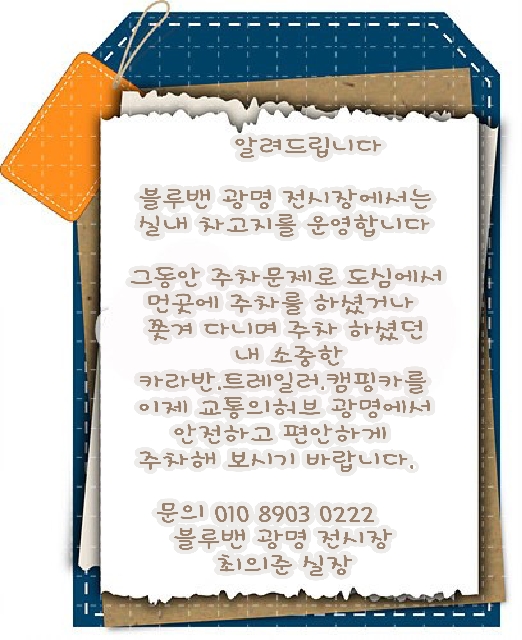 알려드립니다
블루밴 광명 전시장에서는
실내 차고지를 운영합니다
그동안 주차문제로 도심에서
먼곳에 주차를 하셨거나
쫓겨 다니며 주차 하셨던
내 소중한
카라반.트레일러.캠핑카를
이제 교통의허브 광명에서
안전하고 편안하게
주차해 보시기 바랍니다.
문의 010 8903 0222
블루밴 광명 전시장
최의준 실장